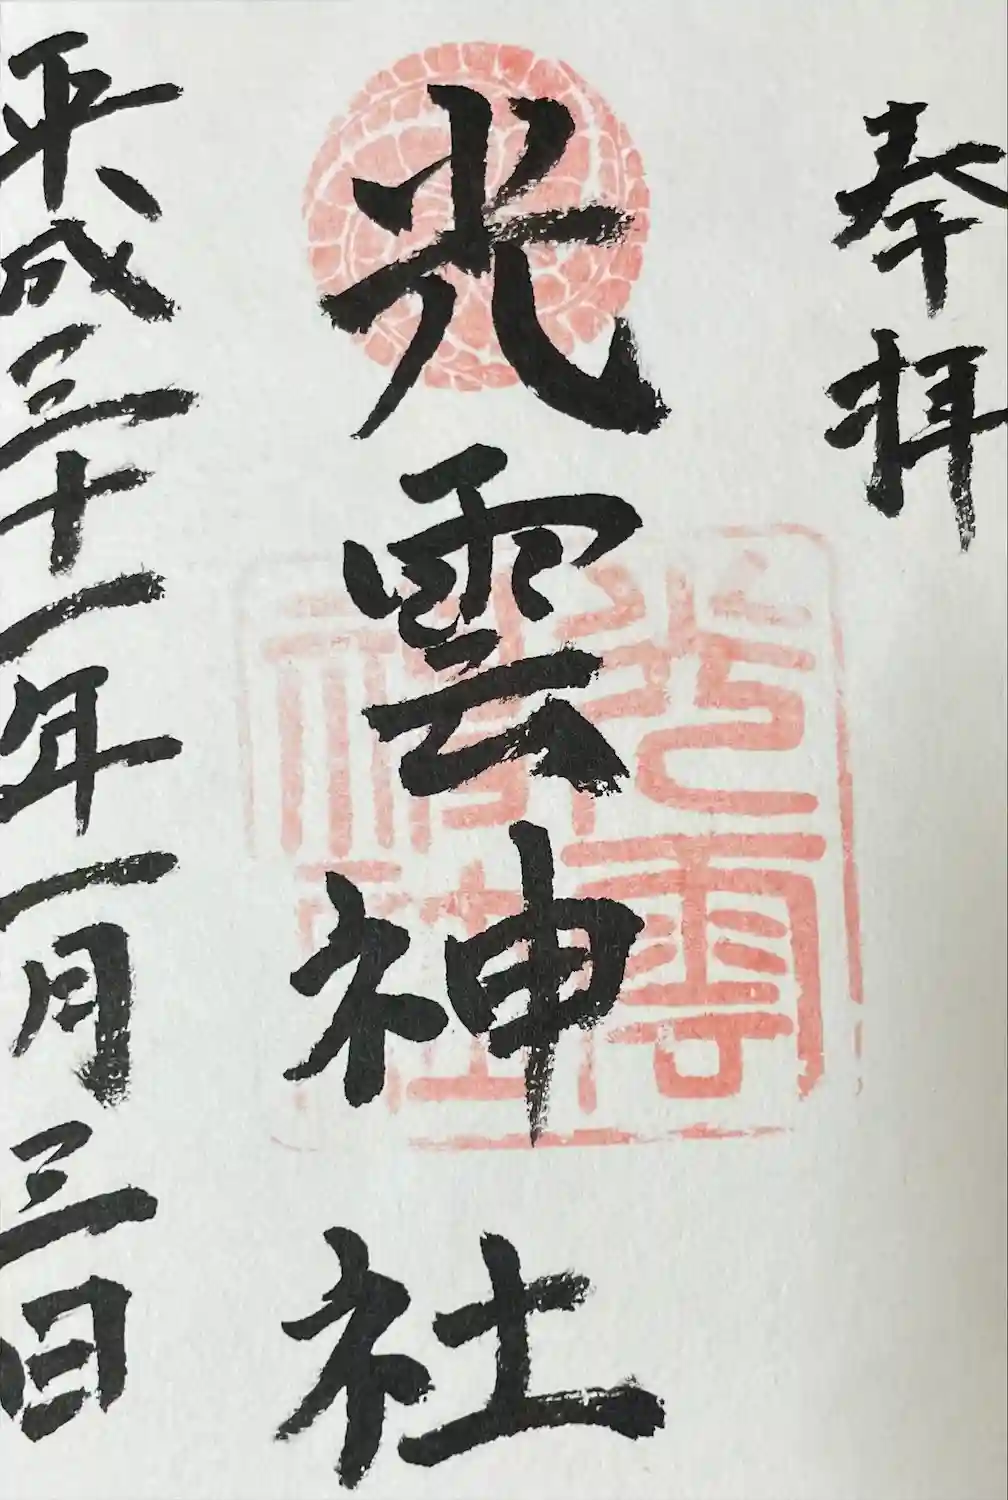 奉拝
光雲神社
光雲
神社
平成三十一年一月三日